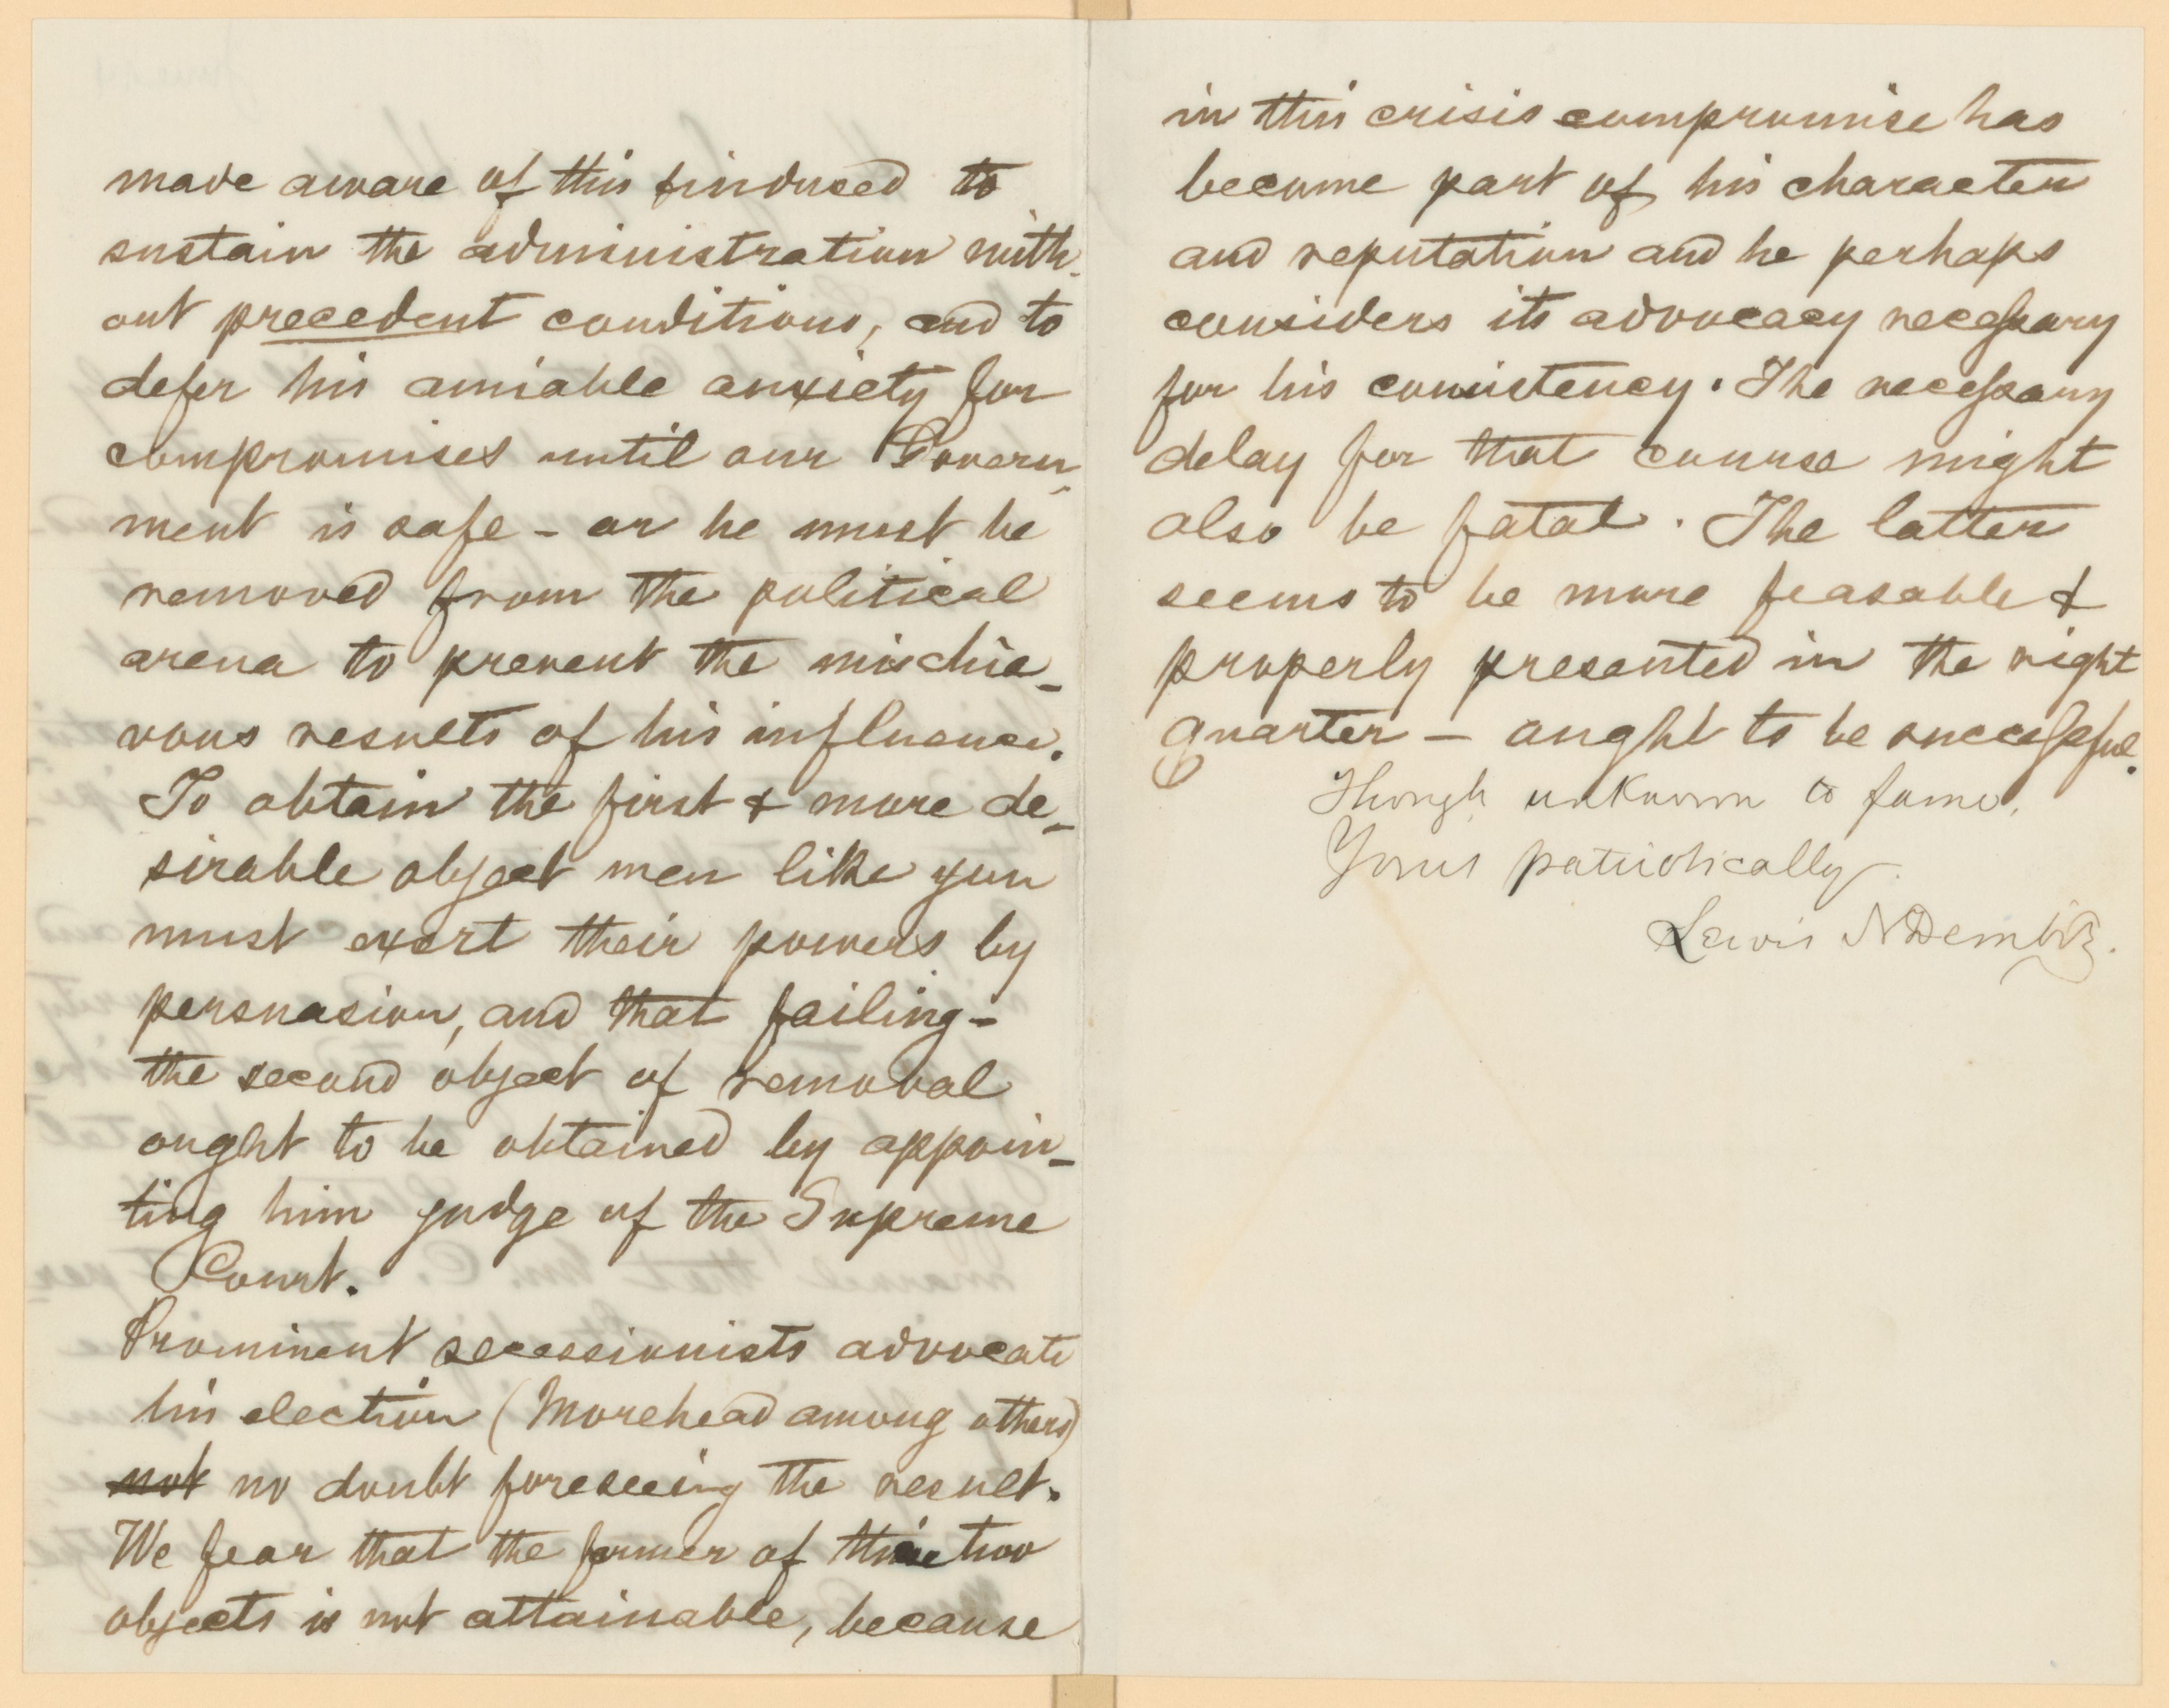 made aware of this & induced to
sustain the administration with-
out precedent conditions, and to
defer his amiable anxiety for
compromises until our Govern-
ment is safe - or he must be
removed from the political
arena to prevent the mischie-
vous results of his influence.
To obtain the first & more de-
sirable object men like you
must exert their powers by
persuasion, and that failing -
the second object of removal
ought to be obtained by appoin-
ting him judge of the Supreme
Court.
Prominent secessionists advocate
his election (Morehead among others)
not no doubt foreseeing the result.
We fear that the former of these two
objects is not attainable, because
in this crisis compromise has
become part of his character
and reputation and he perhaps
considers its advocacy necessary
for his consistency. The necessary
delay for that course might
also be fatal. The latter
seems to be more feasable &
properly presented in the right
quarter - ought to be successful.
Though unknown to fame,
Yours patriotically
Lewis N Dembitz.